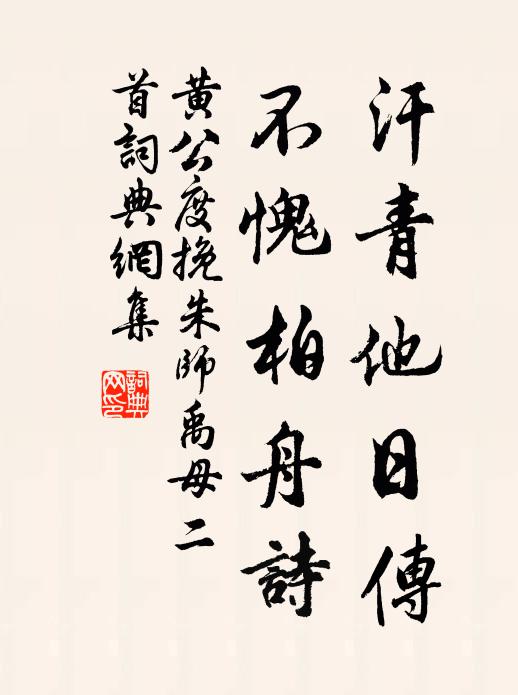 汗青他日傳
不愧柏舟詩
黄公度挽朱師禹母二
首詞典網集
詞典
网印